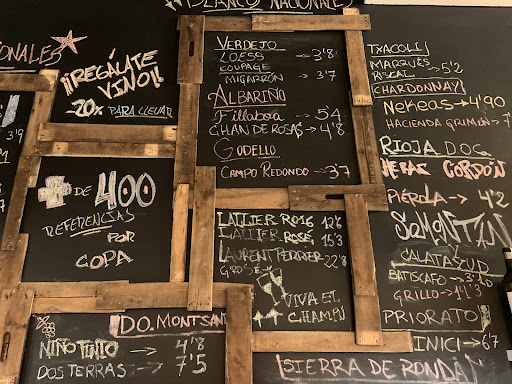 BLANCO NACIONALES
VERDEJO
LOESS → 3'8
COUPAGE
MIGARRÓN → 3'7
ALBARIÑO
Fillaboa → 5'4
CHAN DE ROSAS → 4'8
GODELLO
CAMPO REDONDO → 3'7
¡¡REGÁLATE
VINO!!
-20% PARA LLEVAR
+ DE 400
REFERENCIAS
POR
COPA
LALLIER R016 12'6
LALLIER ROSÉ 15'3
LAURENT PERRIER
G. ROSÉ 22'8
VIVA EL
CHAMPÁN
D.O. MONTSANT
NIÑO TINTO → 4'8
DOS TERRAS → 7'5
TXACOLIS
MARQUÉS
RISCAL → 5'2
CHARDONNAY
NEKEAS → 4'90
HACIENDA GRIMÓN → 7
RIOJA DOCa
HERAS CORDÓN
PIÉROLA → 4'2
SOMONTANO
Y
CALATAYUD
BATISCAFO → 3'90
GRILLO → 11'3
PRIORATO
INICI → 6'7
SIERRA DE RONDA